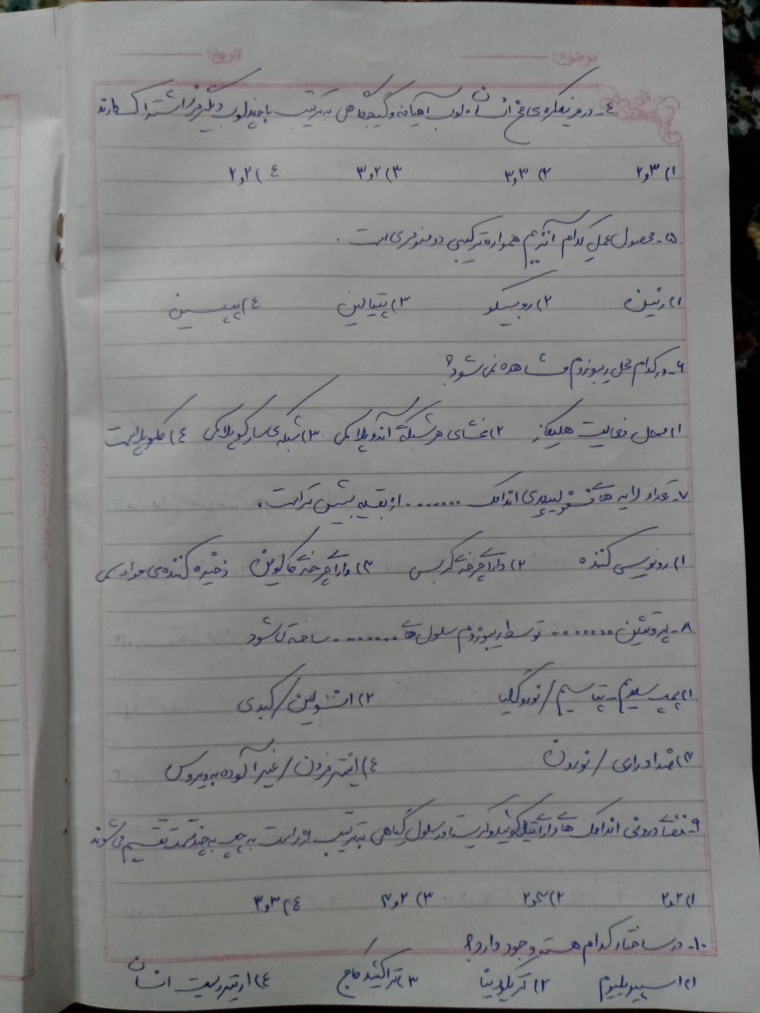 موضوع: تاریخ:
۴- در هر نیمکره‌ی مخ انسان، لوب آهیانه و گیجگاهی به ترتیب با چند لوب دیگر مرز اشتراک دارند
۱) ۳ و ۲ ۲) ۳ و ۳ ۳) ۲ و ۳ ۴) ۲ و ۲
۵- محصول عمل کدام آنزیم همواره ترکیبی دو منومری است.
۱) رنین ۲) روبیسکو ۳) پتیالین ۴) پپسین
۶- در کدام محل ریبوزوم مشاهده نمی‌شود؟
۱) محل فعالیت هلیکاز ۲) غشای هر شبکه آندوپلاسمی ۳) شبکه‌ی سارکوپلاسمی ۴) کلروپلاست
۷- تعداد لایه های فسفولیپیدی اندامک ....... از بقیه بیش تر است.
۱) رونویسی کننده ۲) دارای چرخه کربس ۳) دارای چرخه کالوین ذخیره کننده‌ی مواد سمی
۸- پروتئین ....... توسط ریبوزوم سلول های ....... ساخته نمی‌شود
۱) پمپ سدیم - پتاسیم / نوروگلیا ۲) انسولین / کبدی
۳) ضد ادراری / نورون ۴) اینترفرون / غیر آلوده به ویروس
۹- فضای درونی اندامک های دارای تیلاکوئید و کریستا در سلول گیاهی به ترتیب از راست به چپ به چند قسمت تقسیم می‌شوند
۱) ۲ و ۲ ۲) ۳ و ۲ ۳) ۲ و ۳ ۴) ۳ و ۳
۱۰- در ساختار کدام هسته وجود دارد؟
۱) اسپیریلیوم ۲) آکریلاریا ۳) تراکئید کاج ۴) اریتروسیت انسان